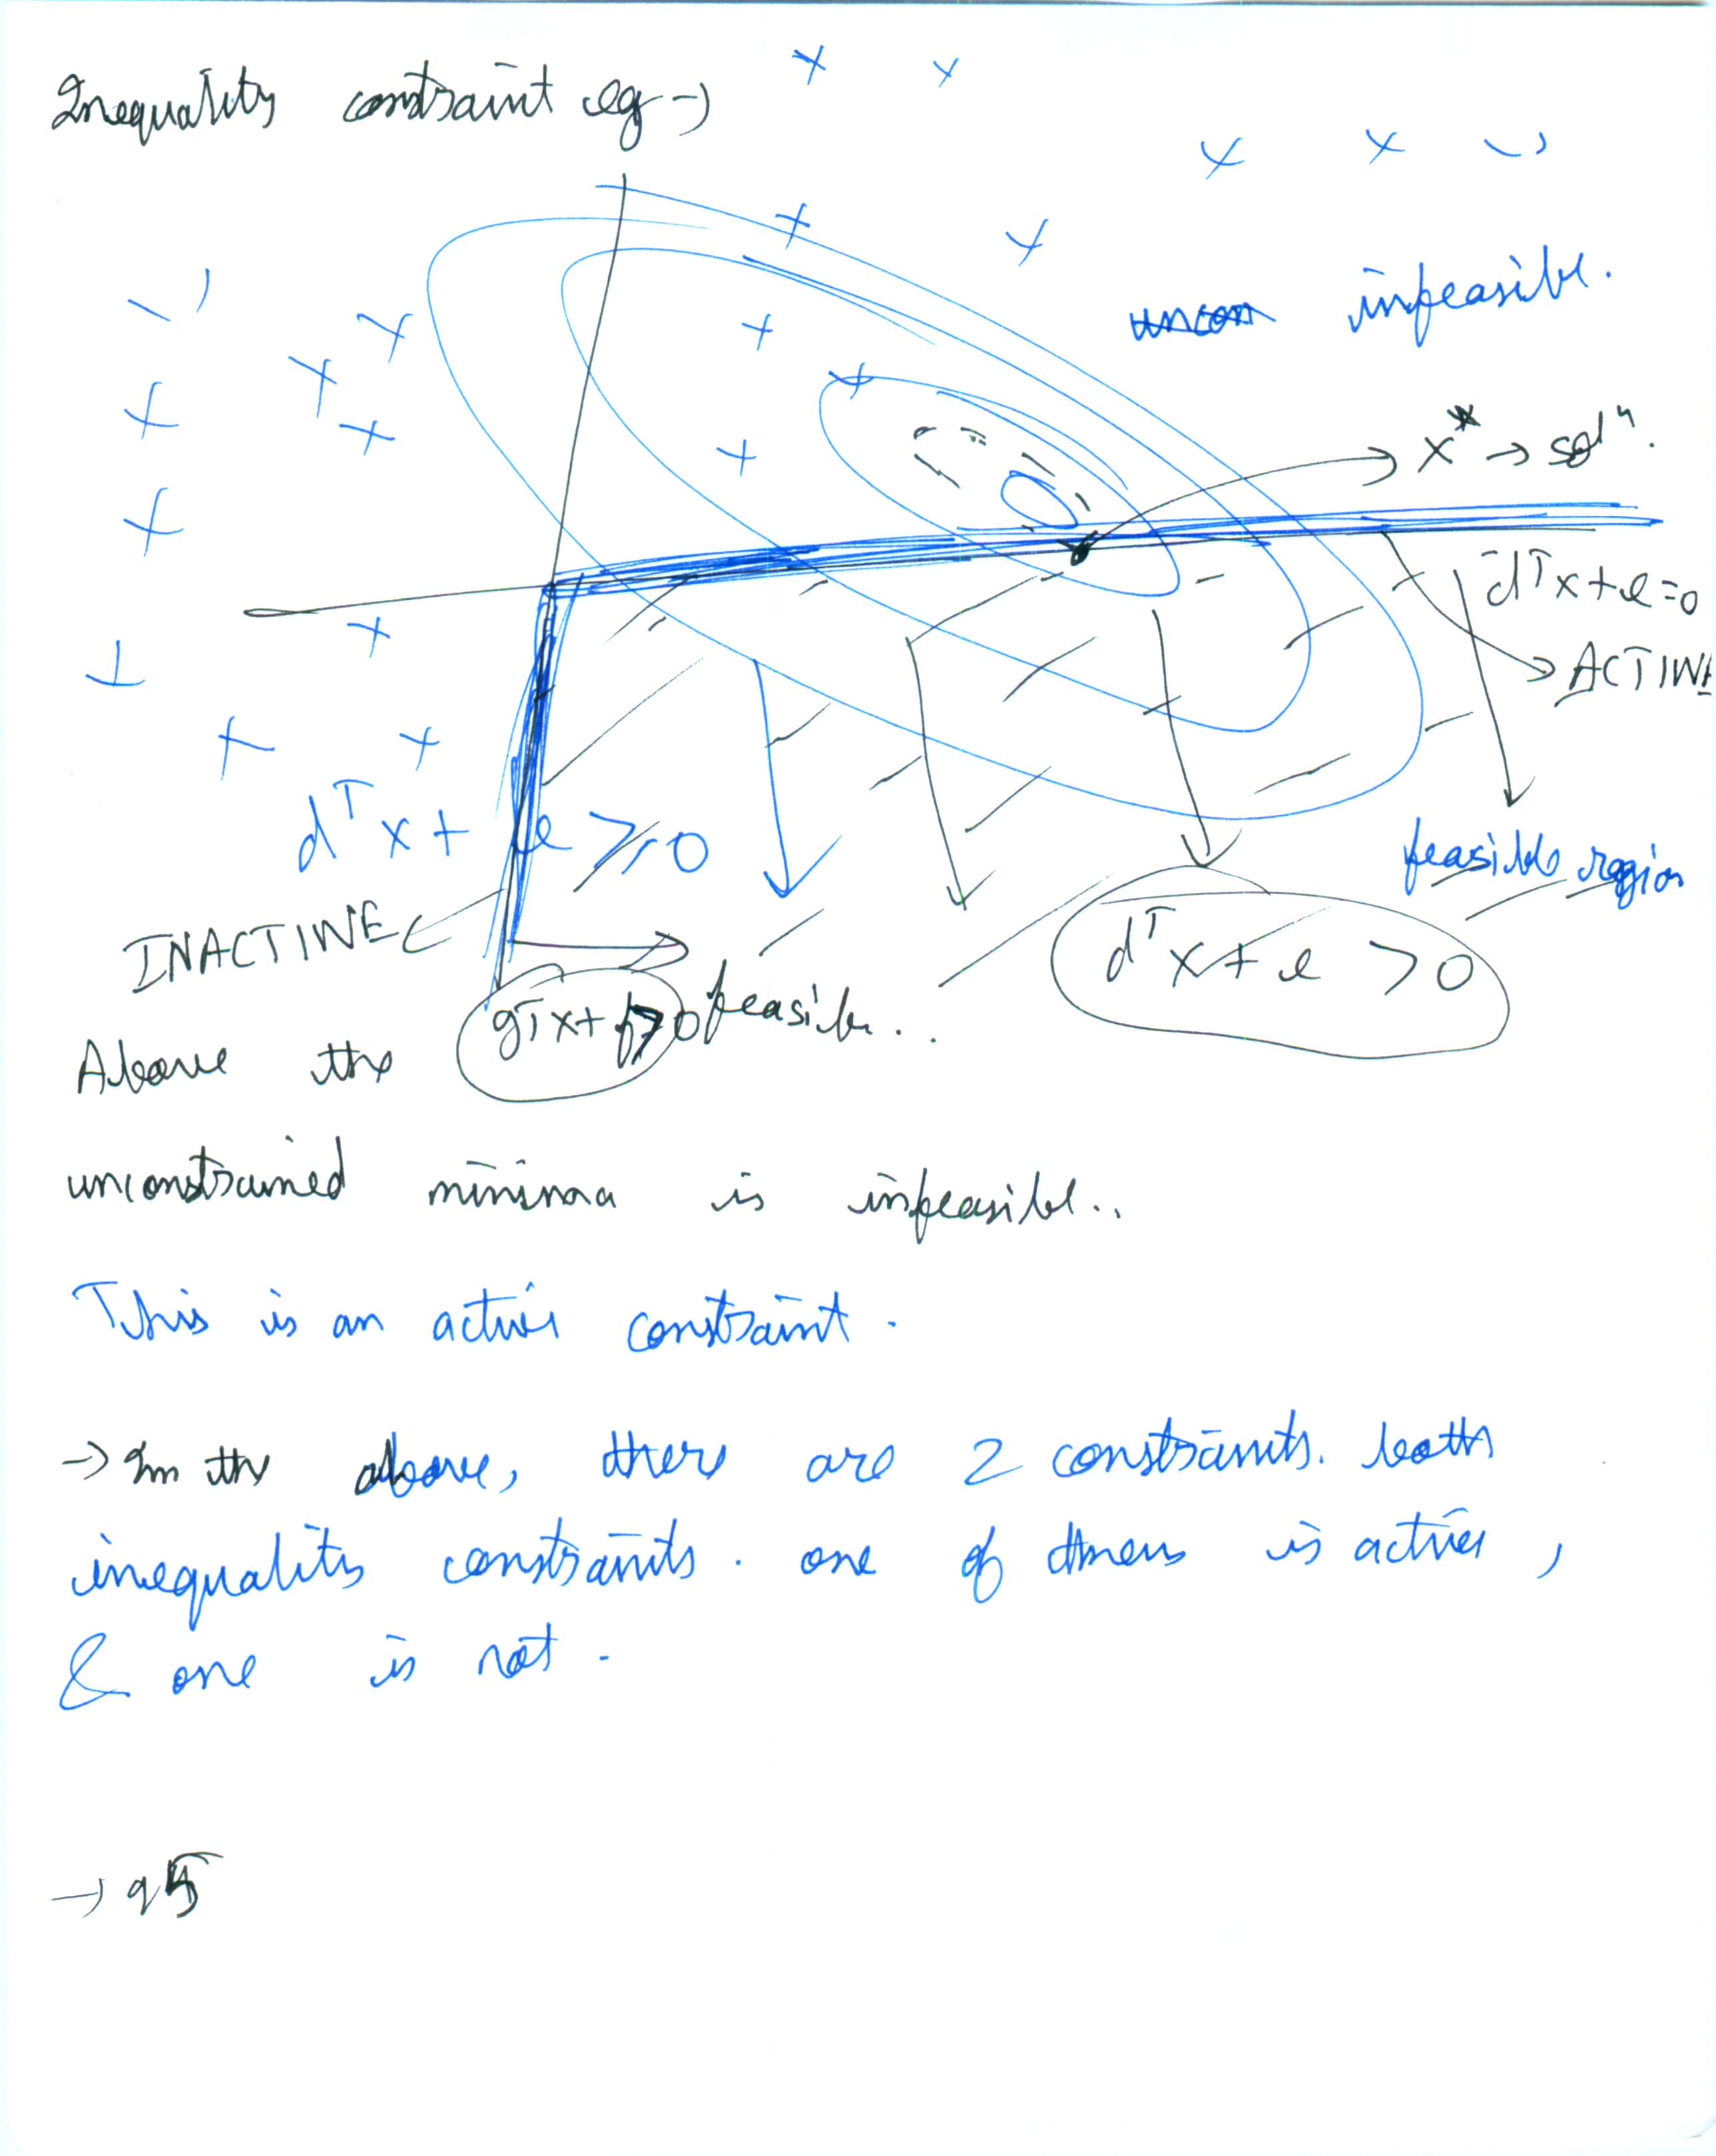 Inequality constraint eg →
infeasible.
x* → solⁿ.
dᵀx + e = 0
→ ACTIVE
dᵀx + e ≥ 0
feasible region
INACTIVE
dᵀx + e > 0
gᵀx + f > 0 feasible.
Above the
unconstrained minima is infeasible..
This is an active constraint.
→ In the above, there are 2 constraints. both
inequality constraints. one of them is active,
& one is not.